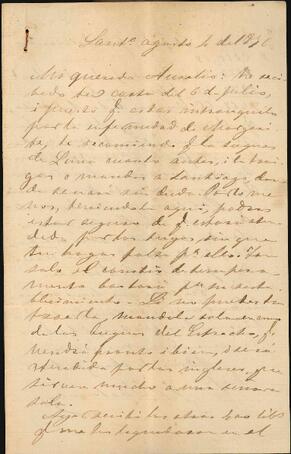 Sant.º agosto 1 de 18
Mi querido Aurelio: He reci
bido tu carta del 6 de julio,
i q. estas intranquilo
por la enfermedad de Margari
ta, te recomiendo q. la saques
de Lima cuanto antes, i la trai
gas o mandes a Santiago, don
de sanará sin duda. Por lo me
nos, teniendola aquí, podras
estar seguro de q. estará aten
dida por los suyos, sin que
tu hagas falta p.ª ello. Tan
solo el cambio de tempera
mento bastará p.ª su resta
blecimiento. Si no puedes tu
traerla, mandala sola en uno
de los buques del Estrecho, q.
vendrá pronto i bien, i será
atendida por los ingleses, que
sirven mucho a una señora
sola.
Ayer recibi las otras
q. me